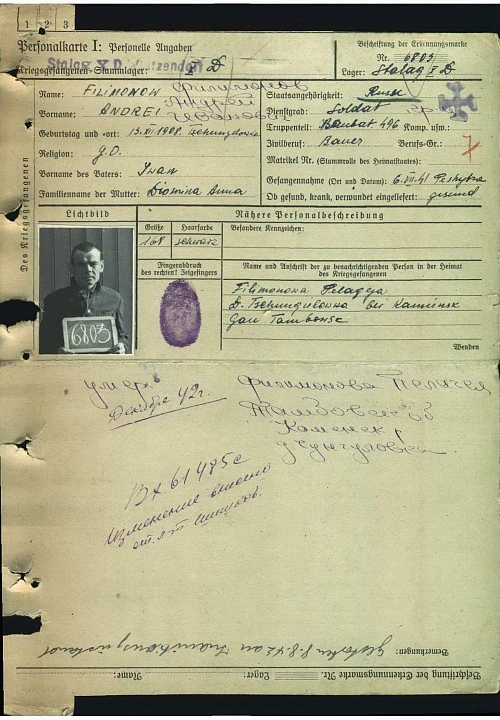 1 2 3
Personalkarte I: Personelle Angaben
Beschriftung der Erkennungsmarke
Nr. 6803
Kriegsgefangenen-Stammlager: X D
Lager: Stalag X D
Des Kriegsgefangenen
Name: FILIMONOW Филимонов
Vorname: ANDREI Андрей
Иванович
Geburtstag und -ort: 15.XII.1908.
Religion: g.O.
Vorname des Vaters: Iwan
Familienname der Mutter: Diomina Anna
Staatsangehörigkeit: Russe
Dienstgrad: Soldat
Truppenteil: Baubat. 496 Komp. usw.:
Zivilberuf: Bauer Berufs-Gr.: 7
Matrikel Nr. (Stammrolle des Heimatstaates):
Gefangennahme (Ort und Datum): 6.VII.41
Ob gesund, krank, verwundet eingeliefert: gesund
Lichtbild
Nähere Personalbeschreibung
Größe Haarfarbe
168 schwarz
Besondere Kennzeichen:
Fingerabdruck
des rechten! Zeigefingers
Name und Anschrift der zu benachrichtigenden Person in der Heimat
des Kriegsgefangenen
Filimonowa Pelageja
D. Tschungulowna bei Kaminsk
Gau Tambowsk
6803
Wenden
умер Филимонова Пелагея
Декабре 42г. Тамбовской
Каменск р
д. Чунгуловка
Вх. 61485с
Изменение внесено
Bemerkungen: Gestorben
Beschriftung der Erkennungsmarke Nr. Lager: Name: